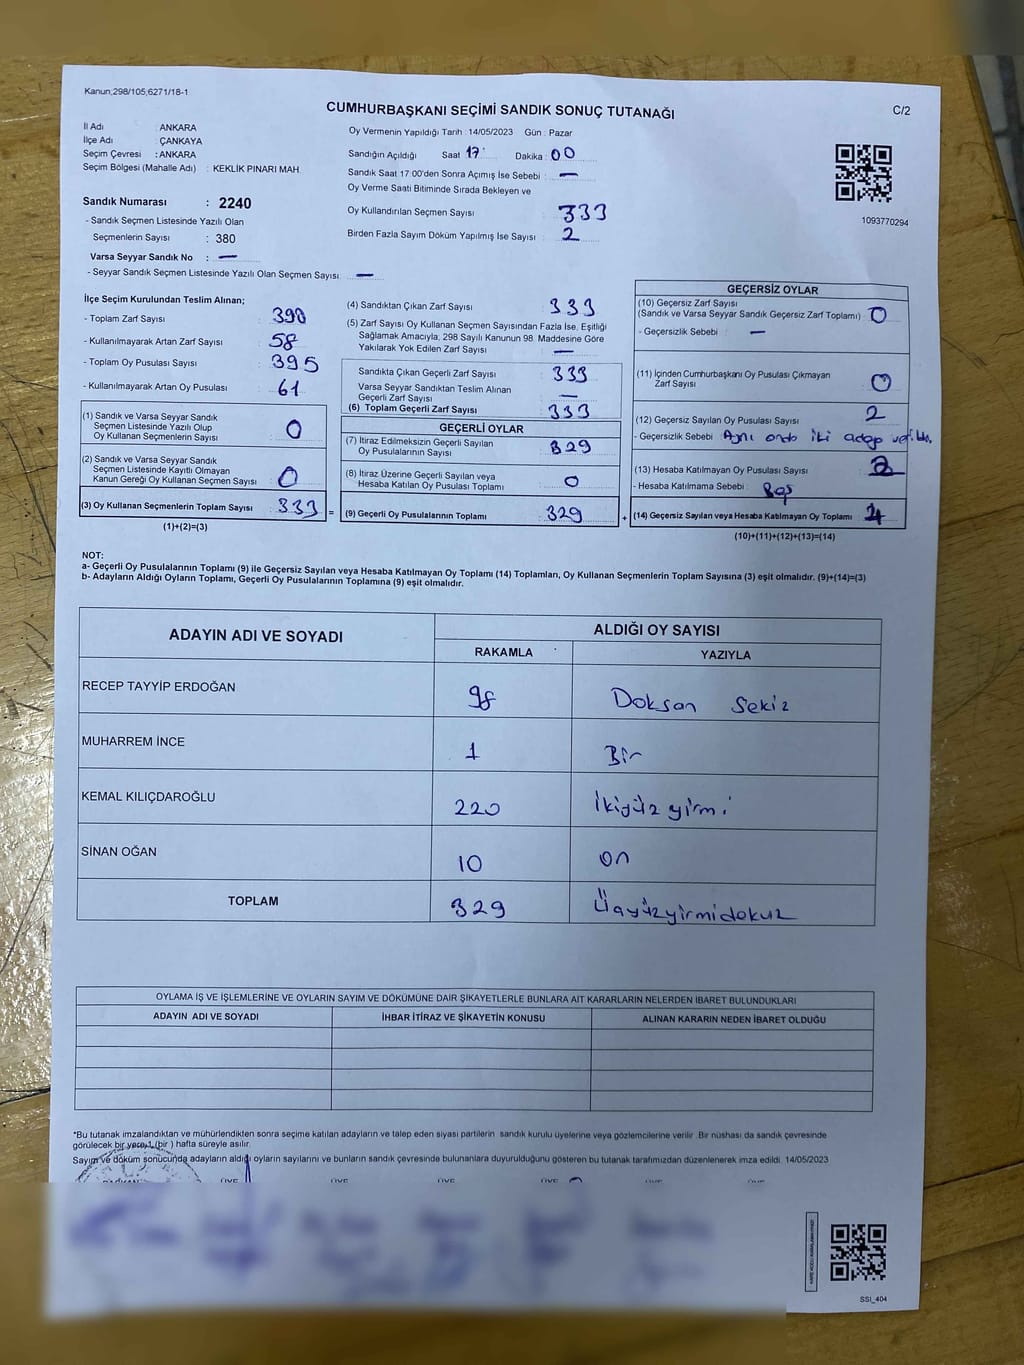 Kanun;298/105;6271/18-1
CUMHURBAŞKANI SEÇİMİ SANDIK SONUÇ TUTANAĞI
C/2
İl Adı : ANKARA
İlçe Adı : ÇANKAYA
Seçim Çevresi : ANKARA
Seçim Bölgesi (Mahalle Adı) : KEKLİK PINARI MAH.
Sandık Numarası : 2240
- Sandık Seçmen Listesinde Yazılı Olan
Seçmenlerin Sayısı : 380
Varsa Seyyar Sandık No : —
- Seyyar Sandık Seçmen Listesinde Yazılı Olan Seçmen Sayısı: —
Oy Vermenin Yapıldığı Tarih : 14/05/2023 Gün : Pazar
Sandığın Açıldığı Saat : 17 Dakika : 00
Sandık Saat 17:00'den Sonra Açımış İse Sebebi : —
Oy Verme Saati Bitiminde Sırada Bekleyen ve
Oy Kullandırılan Seçmen Sayısı : 333
Birden Fazla Sayım Döküm Yapılmış İse Sayısı : 2
1093770294
İlçe Seçim Kurulundan Teslim Alınan;
- Toplam Zarf Sayısı : 390
- Kullanılmayarak Artan Zarf Sayısı : 58
- Toplam Oy Pusulası Sayısı : 395
- Kullanılmayarak Artan Oy Pusulası : 61
(1) Sandık ve Varsa Seyyar Sandık
Seçmen Listesinde Yazılı Olup
Oy Kullanan Seçmenlerin Sayısı : 0
(2) Sandık ve Varsa Seyyar Sandık
Seçmen Listesinde Kayıtlı Olmayan
Kanun Gereği Oy Kullanan Seçmen Sayısı : 0
(3) Oy Kullanan Seçmenlerin Toplam Sayısı : 333 =
(1)+(2)=(3)
(4) Sandıktan Çıkan Zarf Sayısı : 333
(5) Zarf Sayısı Oy Kullanan Seçmen Sayısından Fazla İse, Eşitliği
Sağlamak Amacıyla, 298 Sayılı Kanunun 98. Maddesine Göre
Yakılarak Yok Edilen Zarf Sayısı : —
Sandıkta Çıkan Geçerli Zarf Sayısı : 333
Varsa Seyyar Sandıktan Teslim Alınan
Geçerli Zarf Sayısı : —
(6) Toplam Geçerli Zarf Sayısı : 333
GEÇERLİ OYLAR
(7) İtiraz Edilmeksizin Geçerli Sayılan
Oy Pusulalarının Sayısı : 329
(8) İtiraz Üzerine Geçerli Sayılan veya
Hesaba Katılan Oy Pusulaları Toplamı : 0
(9) Geçerli Oy Pusulalarının Toplamı : 329 +
GEÇERSİZ OYLAR
(10) Geçersiz Zarf Sayısı
(Sandık ve Varsa Seyyar Sandık Geçersiz Zarf Toplamı) : 0
- Geçersizlik Sebebi : —
(11) İçinden Cumhurbaşkanı Oy Pusulası Çıkmayan
Zarf Sayısı : 0
(12) Geçersiz Sayılan Oy Pusulası Sayısı : 2
- Geçersizlik Sebebi : Aynı anda iki adaya
(13) Hesaba Katılmayan Oy Pusulası Sayısı : 2
- Hesaba Katılmama Sebebi : Boş
(14) Geçersiz Sayılan veya Hesaba Katılmayan Oy Toplamı : 4
(10)+(11)+(12)+(13)=(14)
NOT:
a- Geçerli Oy Pusulalarının Toplamı (9) ile Geçersiz Sayılan veya Hesaba Katılmayan Oy Toplamı (14) Toplamları, Oy Kullanan Seçmenlerin Toplam Sayısına (3) eşit olmalıdır. (9)+(14)=(3)
b- Adayların Aldığı Oyların Toplamı, Geçerli Oy Pusulalarının Toplamına (9) eşit olmalıdır.
ADAYIN ADI VE SOYADI
ALDIĞI OY SAYISI
RAKAMLA YAZIYLA
RECEP TAYYİP ERDOĞAN 98 Doksan Sekiz
MUHARREM İNCE 1 Bir
KEMAL KILIÇDAROĞLU 220 İkiyüz yirmi
SİNAN OĞAN 10 on
TOPLAM 329 Üçyüzyirmidokuz
OYLAMA İŞ VE İŞLEMLERİNE VE OYLARIN SAYIM VE DÖKÜMÜNE DAİR ŞİKAYETLERLE BUNLARA AİT KARARLARIN NELERDEN İBARET BULUNDUKLARI
ADAYIN ADI VE SOYADI İHBAR İTİRAZ VE ŞİKAYETİN KONUSU ALINAN KARARIN NEDEN İBARET OLDUĞU
*Bu tutanak imzalandıktan ve mühürlendikten sonra seçime katılan adayların ve talep eden siyasi partilerin sandık kurulu üyelerine veya gözlemcilerine verilir. Bir nüshası da sandık çevresinde
görülecek bir yere 1 (bir ) hafta süreyle asılır.
Sayım ve döküm sonucunda adayların aldığı oyların sayılarını ve bunların sandık çevresinde bulunanlara duyurulduğunu gösteren bu tutanak tarafımızdan düzenlenerek imza edildi. 14/05/2023
ÜYE ÜYE ÜYE ÜYE
SSİ_404